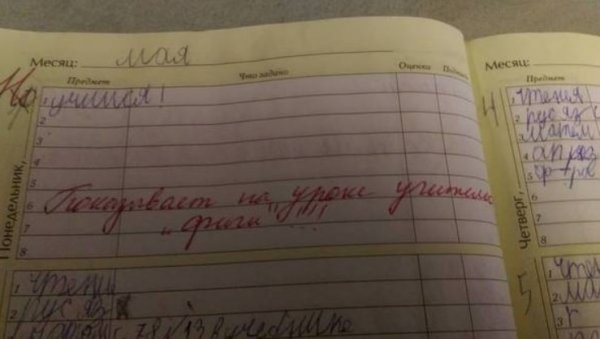 Месяц: мая
Предмет Что задано Оценки
Не учимся!
1
2
3
4
5
6
7
8
Понедельник,
Показывает на уроке учителю
„фиги"!!!
1 чтени
2 рус яз
3 78 №13 в учебнике
Месяц:
Предмет
4
1 чтения
2 рус яз
3 матем
4
5
6
7
8
Четверг,
5
1 чтен
2 ма
3 г